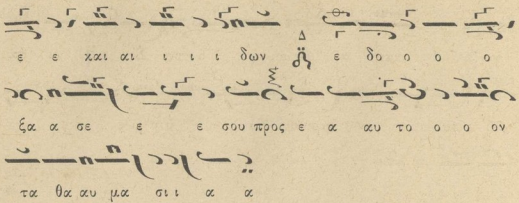 ε ε και αι ι ι ι δων Δ ε δο ο ο ο
ξα α σε ε ε σου προς ε α αυ το ο ο ον
τα θα αυ μα σι ι α α